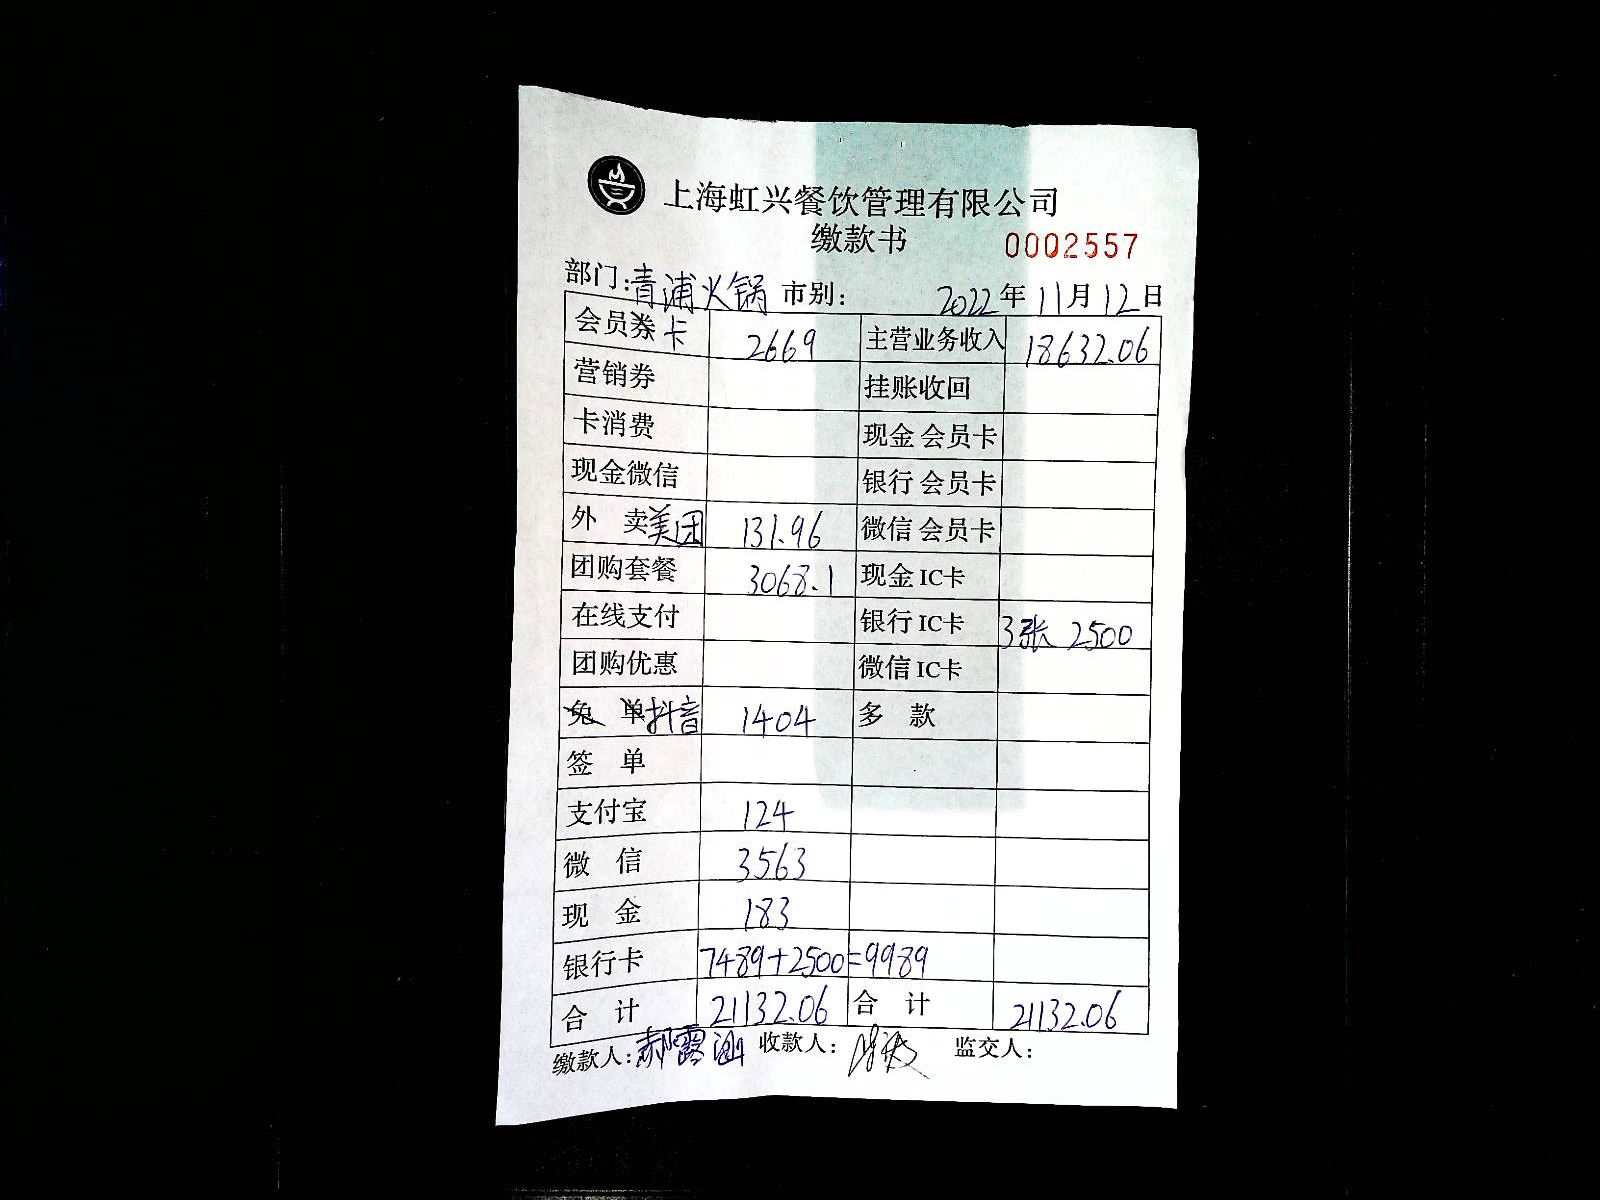 上海虹兴餐饮管理有限公司
缴款书 0002557
部门:青浦火锅 市别: 2022年11月12日
会员券卡 2669 主营业务收入 18632.06
营销券 挂账收回
卡消费 现金会员卡
现金微信 银行会员卡
外 卖美团 131.96 微信会员卡
团购套餐 3068.1 现金IC卡
在线支付 银行IC卡 3张 2500
团购优惠 微信IC卡
免 单抖音 1404 多 款
签 单
支付宝 124
微 信 3563
现 金 183
银行卡 7489+2500=9989
合 计 21132.06 合 计 21132.06
缴款人:郝露涵 收款人: 监交人: